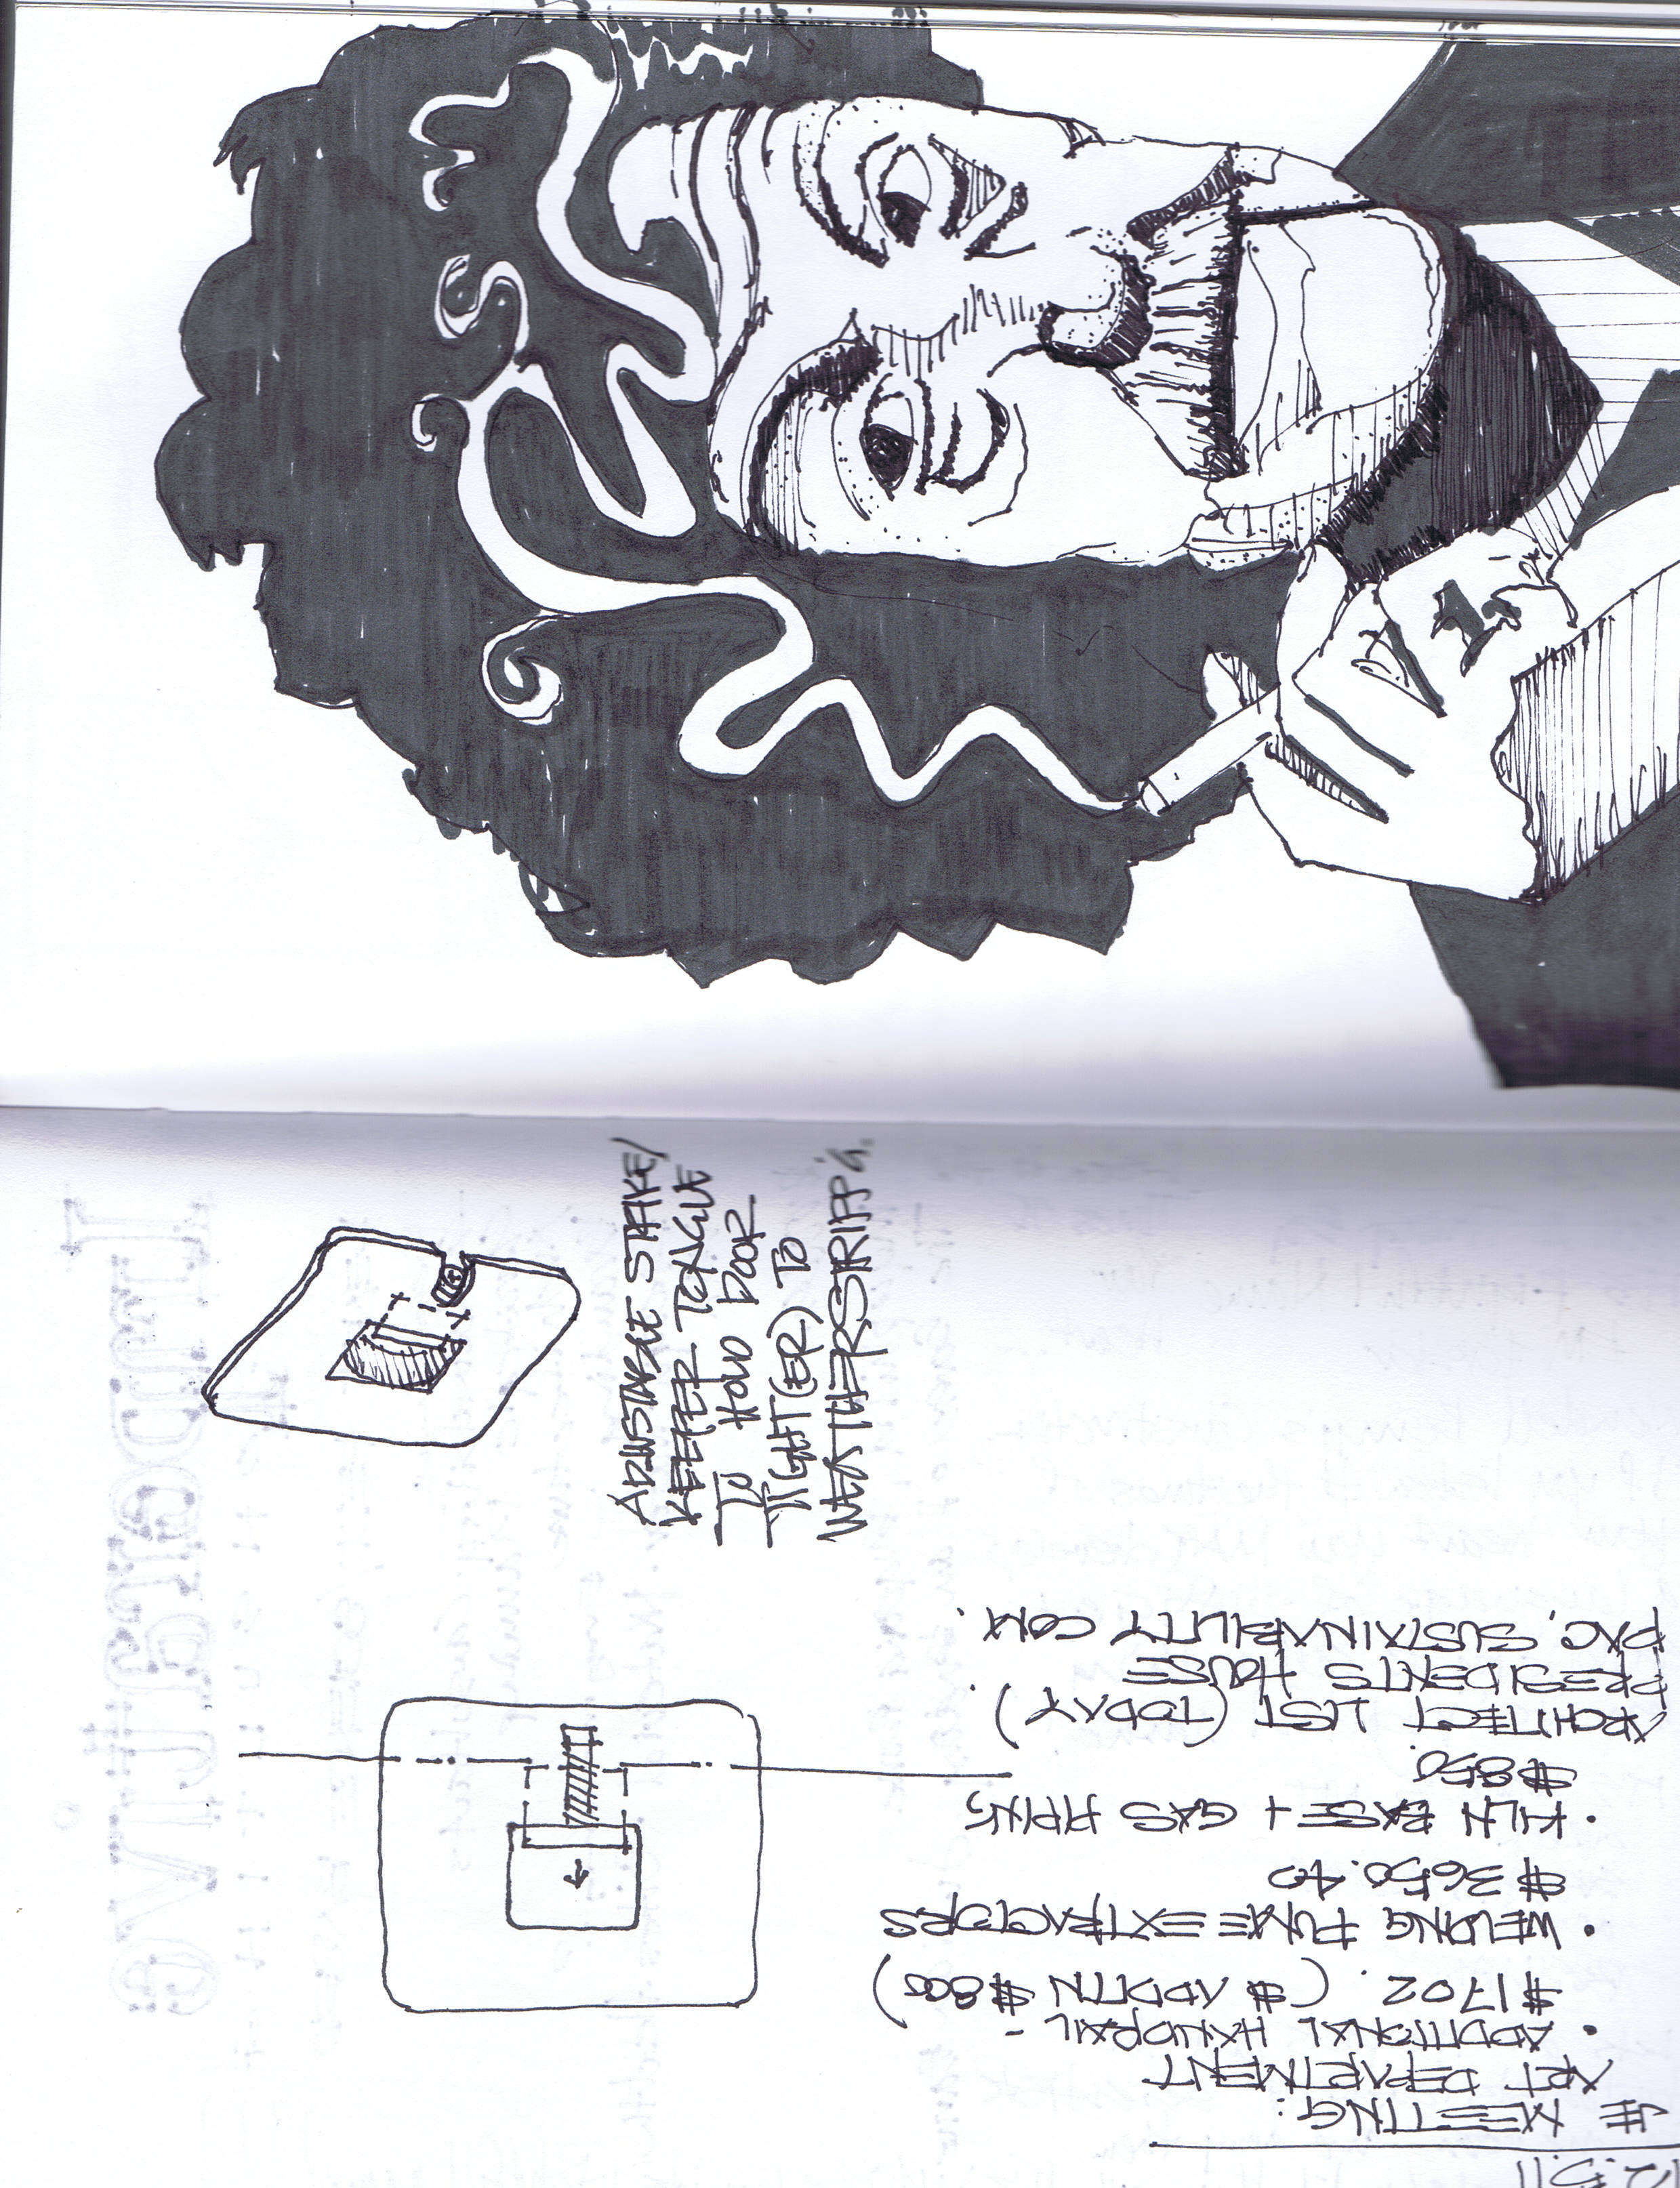 12.5.11
JE MEETING:
ART DEPARTMENT
• ADDITIONAL HANDRAIL -
$1702. ($ ADDITN $800)
• WELDING FUME EXTRACTORS
$3650.40
• KILN BASE + GAS PIPING
$850.
ARCHITECT LIST (TODAY).
PRESIDENTS HOUSE
PAC. SUSTAINABILITY COM.
ADJUSTABLE STRIKE/
KEEPER TONGUE
TO HOLD DOOR
TIGHT(ER) TO
WEATHERSTRIPP'G.